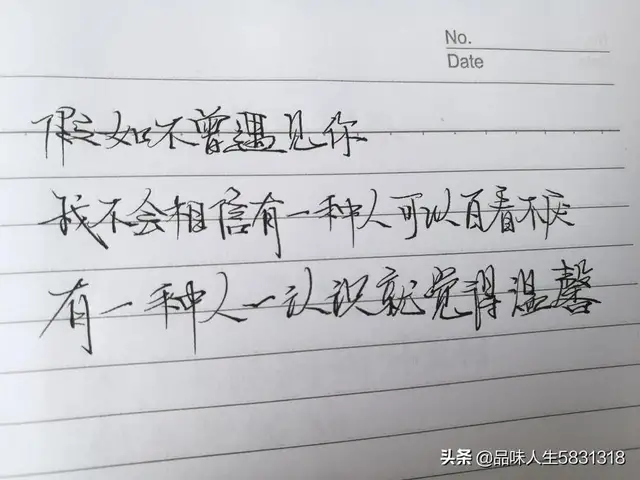 No.
Date
假如不曾遇见你
我不会相信有一种人可以百看不厌
有一种人一认识就觉得温馨
头条 @品味人生5831318